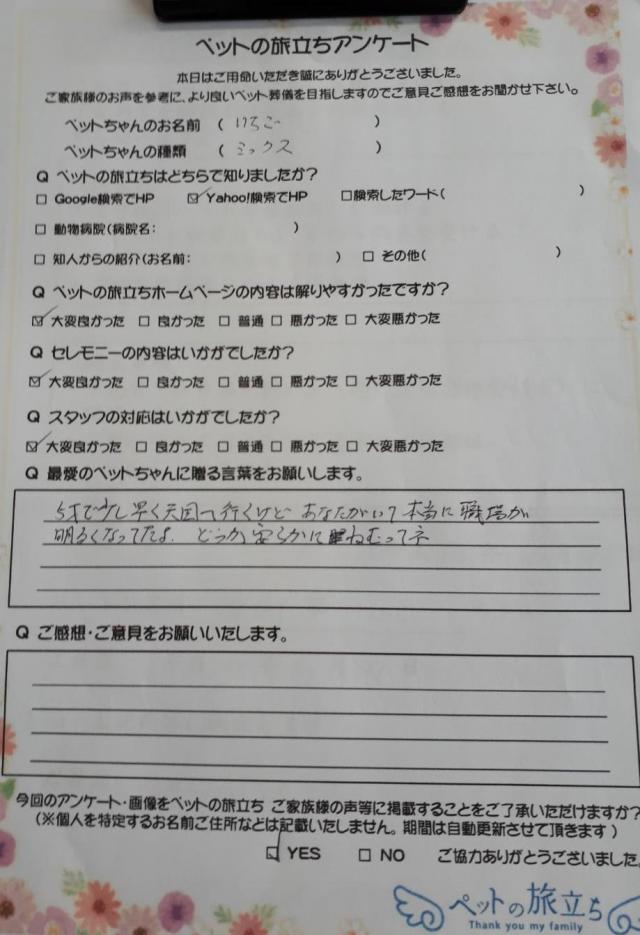 ペットの旅立ちアンケート
本日はご用命いただき誠にありがとうございました。
ご家族様のお声を参考に、より良いペット葬儀を目指しますのでご意見ご感想をお聞かせ下さい。
ペットちゃんのお名前 ( いちご )
ペットちゃんの種類 ( ミックス )
Q ペットの旅立ちはどちらで知りましたか?
□ Google検索でHP ☑ Yahoo!検索でHP □検索したワード( )
□ 動物病院(病院名: )
□ 知人からの紹介(お名前: ) □ その他( )
Q ペットの旅立ちホームページの内容は解りやすかったですか?
☑ 大変良かった □ 良かった □ 普通 □ 悪かった □ 大変悪かった
Q セレモニーの内容はいかがでしたか?
☑ 大変良かった □ 良かった □ 普通 □ 悪かった □ 大変悪かった
Q スタッフの対応はいかがでしたか?
☑ 大変良かった □ 良かった □ 普通 □ 悪かった □ 大変悪かった
Q 最愛のペットちゃんに贈る言葉をお願いします。
5才で少し早く天国へ行くけど あなたがいて本当に職場が
明るくなってたよ. どうか安らかに ねむってネ
Q ご感想・ご意見をお願いいたします。
今回のアンケート・画像をペットの旅立ち ご家族様の声等に掲載することをご了承いただけますか?
(※個人を特定するお名前ご住所などは記載いたしません。期間は自動更新させて頂きます)
☑ YES □ NO ご協力ありがとうございました。
ペットの旅立ち
Thank you my family